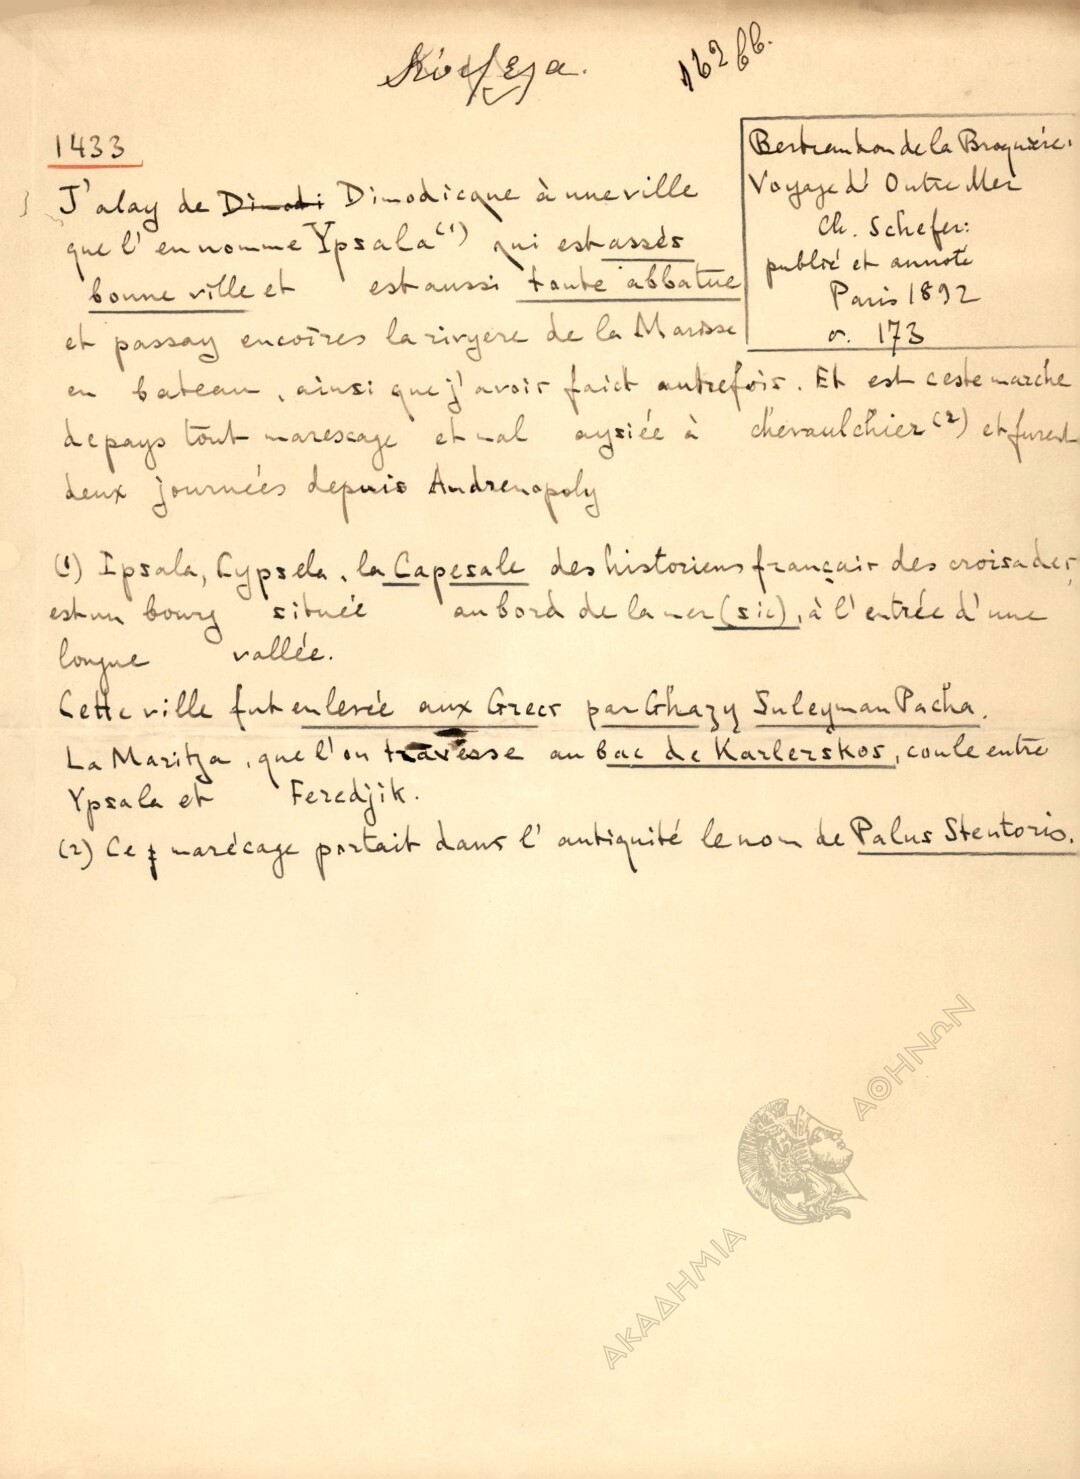 Κύψελα.
162 ββ.
1433
Bertrandon de la Broquière:
Voyage d' Outre Mer
Ch. Schefer:
publié et annoté
Paris 1892
σ. 173
J'alay de Dimodi Dimodicque à une ville
que l'en nomme Ypsala (1) qui est assés
bonne ville et est aussi toute abbatue
et passay encoires la rivyere de la Marisse
en bateau, ainsi que j'avoir faict autrefois. Et est ceste marche
de pays tout marescage et mal aysiée à chevaulchier (2) et furent
deux journées depuis Andrenopoly
(1) Ipsala, Cypsela, la Capesale des historiens français des croisades,
est un bourg située au bord de la mer (sic), à l'entrée d'une
longue vallée.
Cette ville fut enlevée aux Grecs par Ghazy Suleyman Pacha.
La Maritza, que l'on traverse au bac de Karlerskos, coule entre
Ypsala et Feredjik.
(2) Ce marécage portait dans l'antiquité le nom de Palus Stentoris.
ΑΚΑΔΗΜΙΑ ΑΘΗΝΩΝ